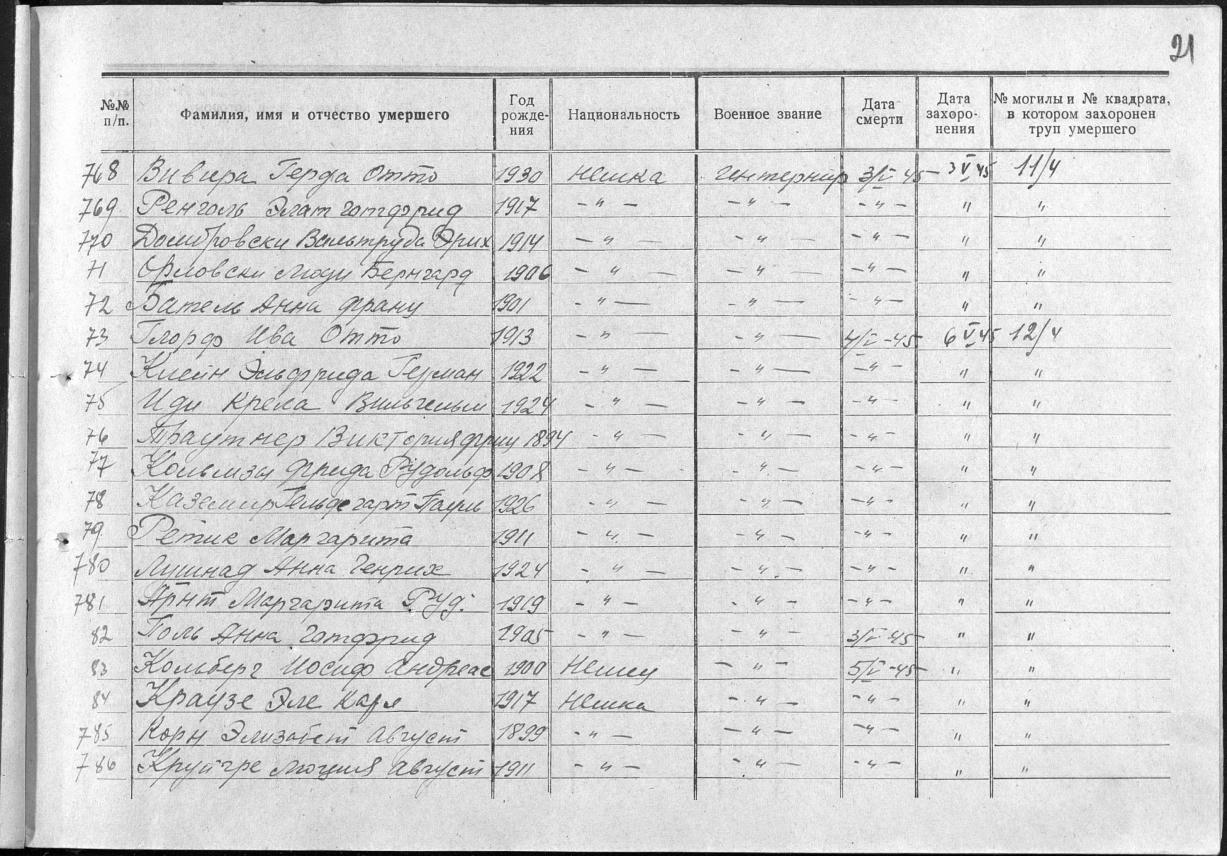 21
№№ п/п. Фамилия, имя и отчество умершего Год рожде- ния Национальность Военное звание Дата смерти Дата захоро- нения № могилы и № квадрата, в котором захоронен труп умершего
768 Вивера Герда Отто 1930 немка интернир 3/V-45 3 V 45 11/4
769 Ренголь Элат Готфрид 1917 -"- -"- -"- " "
770 Домбровски Вальтруда Эрих 1914 -"- -"- -"- " "
71 Орловски Моди Бернгард 1906 -"- -"- -"- " "
72 Батель Анна Франц 1901 -"- -"- -"- " "
73 Глорф Ива Отто 1913 -"- -"- 4/V-45 6 V 45 12/4
74 Клейн Эльфрида Герман 1922 -"- -"- -"- " "
75 Иди Крела Вильгельм 1924 -"- -"- -"- " "
76 Траутнер Виктория Фриц 1894 -"- -"- -"- " "
77 Фрида Рудольф 1908 -"- -"- -"- " "
78 Каземир Гельдегарт Пауль 1926 -"- -"- -"- " "
79 Ретик Маргарита 1911 -"- -"- -"- " "
780 Анна Генрих 1924 -"- -"- -"- " "
781 Арнт Маргарита Руд. 1919 -"- -"- -"- " "
82 Поль Анна Готфрид 1905 -"- -"- 3/V-45 " "
83 Колберг Иосиф Андреас 1900 Немец -"- 5/V-45 " "
84 Краузе Эле Карл 1917 Немка -"- -"- " "
785 Корн Элизабет Август 1899 -"- -"- -"- " "
786 Август 1911 -"- -"- -"- " "